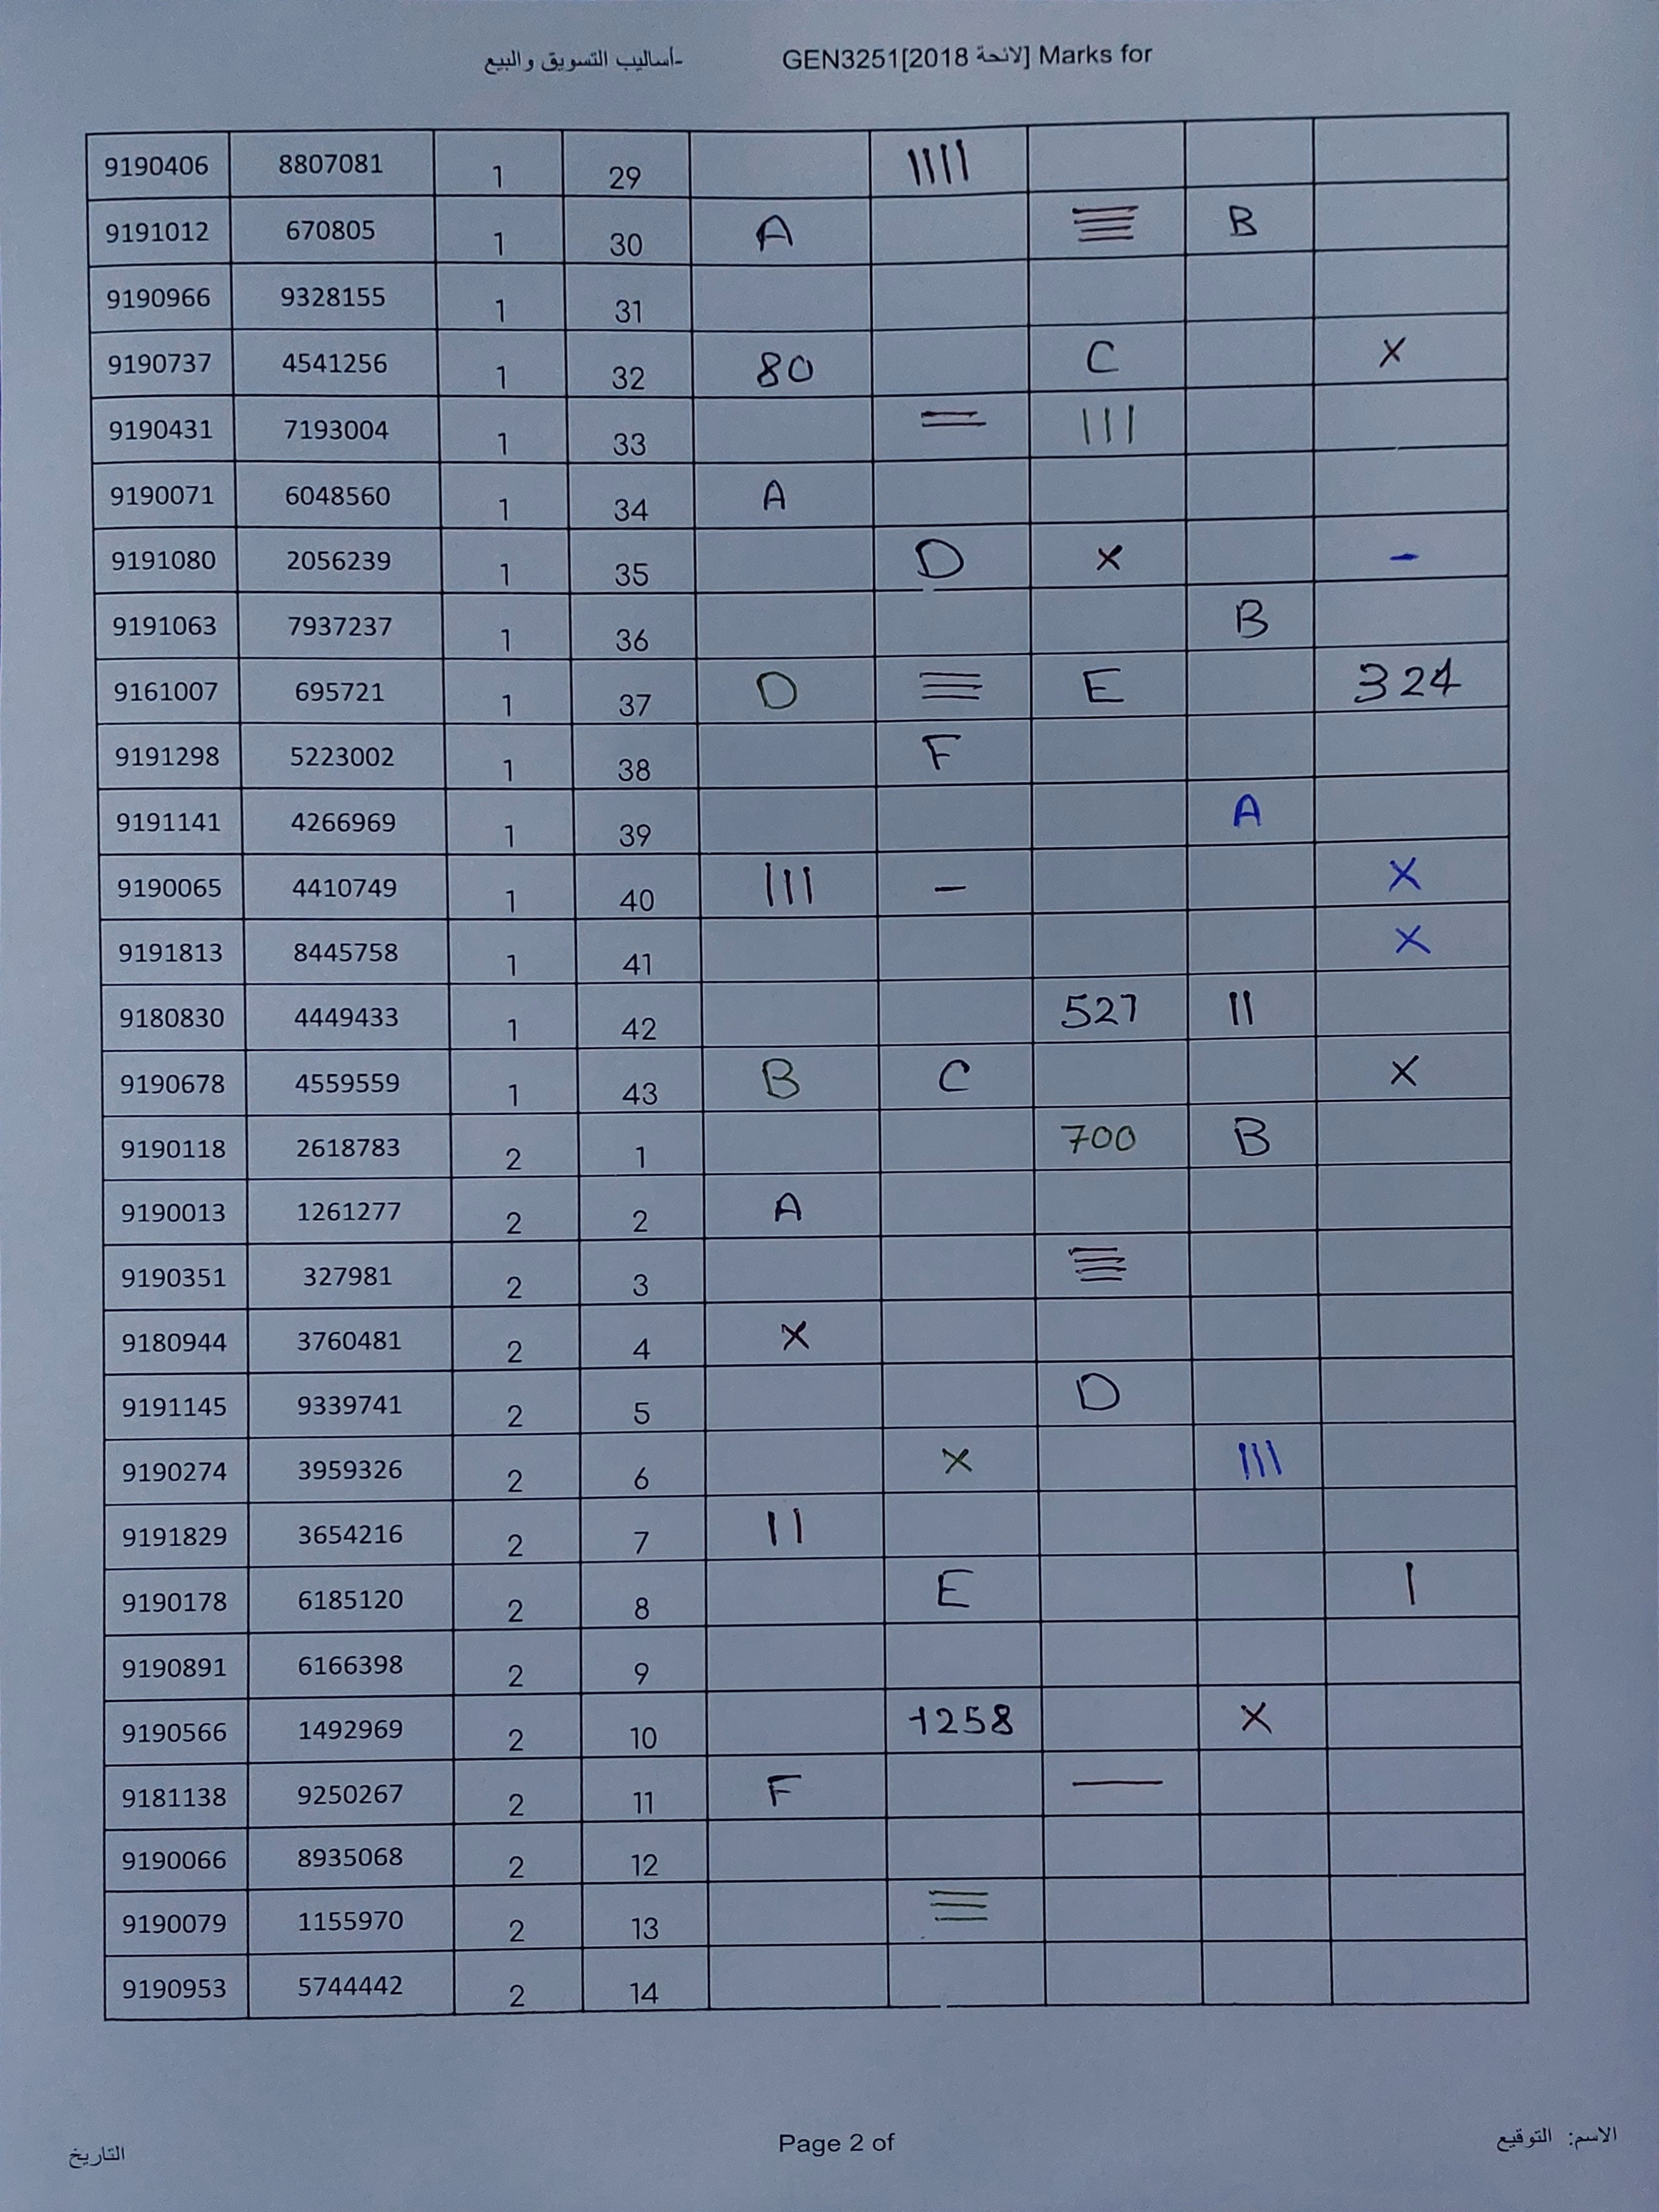 GEN3251[لائحة 2018] Marks for -أساليب التسويق والبيع
9190406 8807081 1 29 ||||
9191012 670805 1 30 A ≡ B
9190966 9328155 1 31
9190737 4541256 1 32 80 C X
9190431 7193004 1 33 = |||
9190071 6048560 1 34 A
9191080 2056239 1 35 D X -
9191063 7937237 1 36 B
9161007 695721 1 37 D ≡ E 324
9191298 5223002 1 38 F
9191141 4266969 1 39 A
9190065 4410749 1 40 ||| - X
9191813 8445758 1 41 X
9180830 4449433 1 42 527 ||
9190678 4559559 1 43 B C X
9190118 2618783 2 1 700 B
9190013 1261277 2 2 A
9190351 327981 2 3 ≡
9180944 3760481 2 4 X
9191145 9339741 2 5 D
9190274 3959326 2 6 X |||
9191829 3654216 2 7 ||
9190178 6185120 2 8 E |
9190891 6166398 2 9
9190566 1492969 2 10 1258 X
9181138 9250267 2 11 F —
9190066 8935068 2 12
9190079 1155970 2 13 ≡
9190953 5744442 2 14
الاسم: التوقيع Page 2 of التاريخ